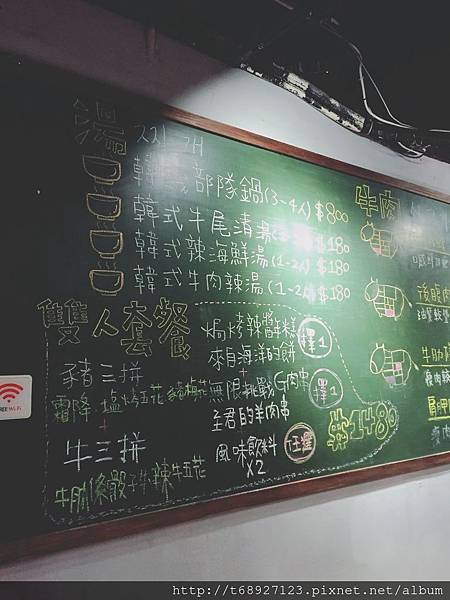 湯 찌개
韓式部隊鍋(3-4人)$800
韓式牛尾清湯 $180
韓式辣海鮮湯(1-2人)$180
韓式牛肉辣湯(1-2人)$180
雙人套餐
豬三拼
霜降 塩烤五花 梅花
+
牛三拼
牛肋條 骰子牛 辣牛五花
焗烤辣醬年糕
來自海洋的餅
擇1
+
無限挑戰G肉串
圣君的羊肉串
擇1
+
風味飲料
X2
任選
$1480
牛肉
後腹肉
牛肋
肩胛
FREE Wi-Fi
http://t68927123.pixnet.net/album